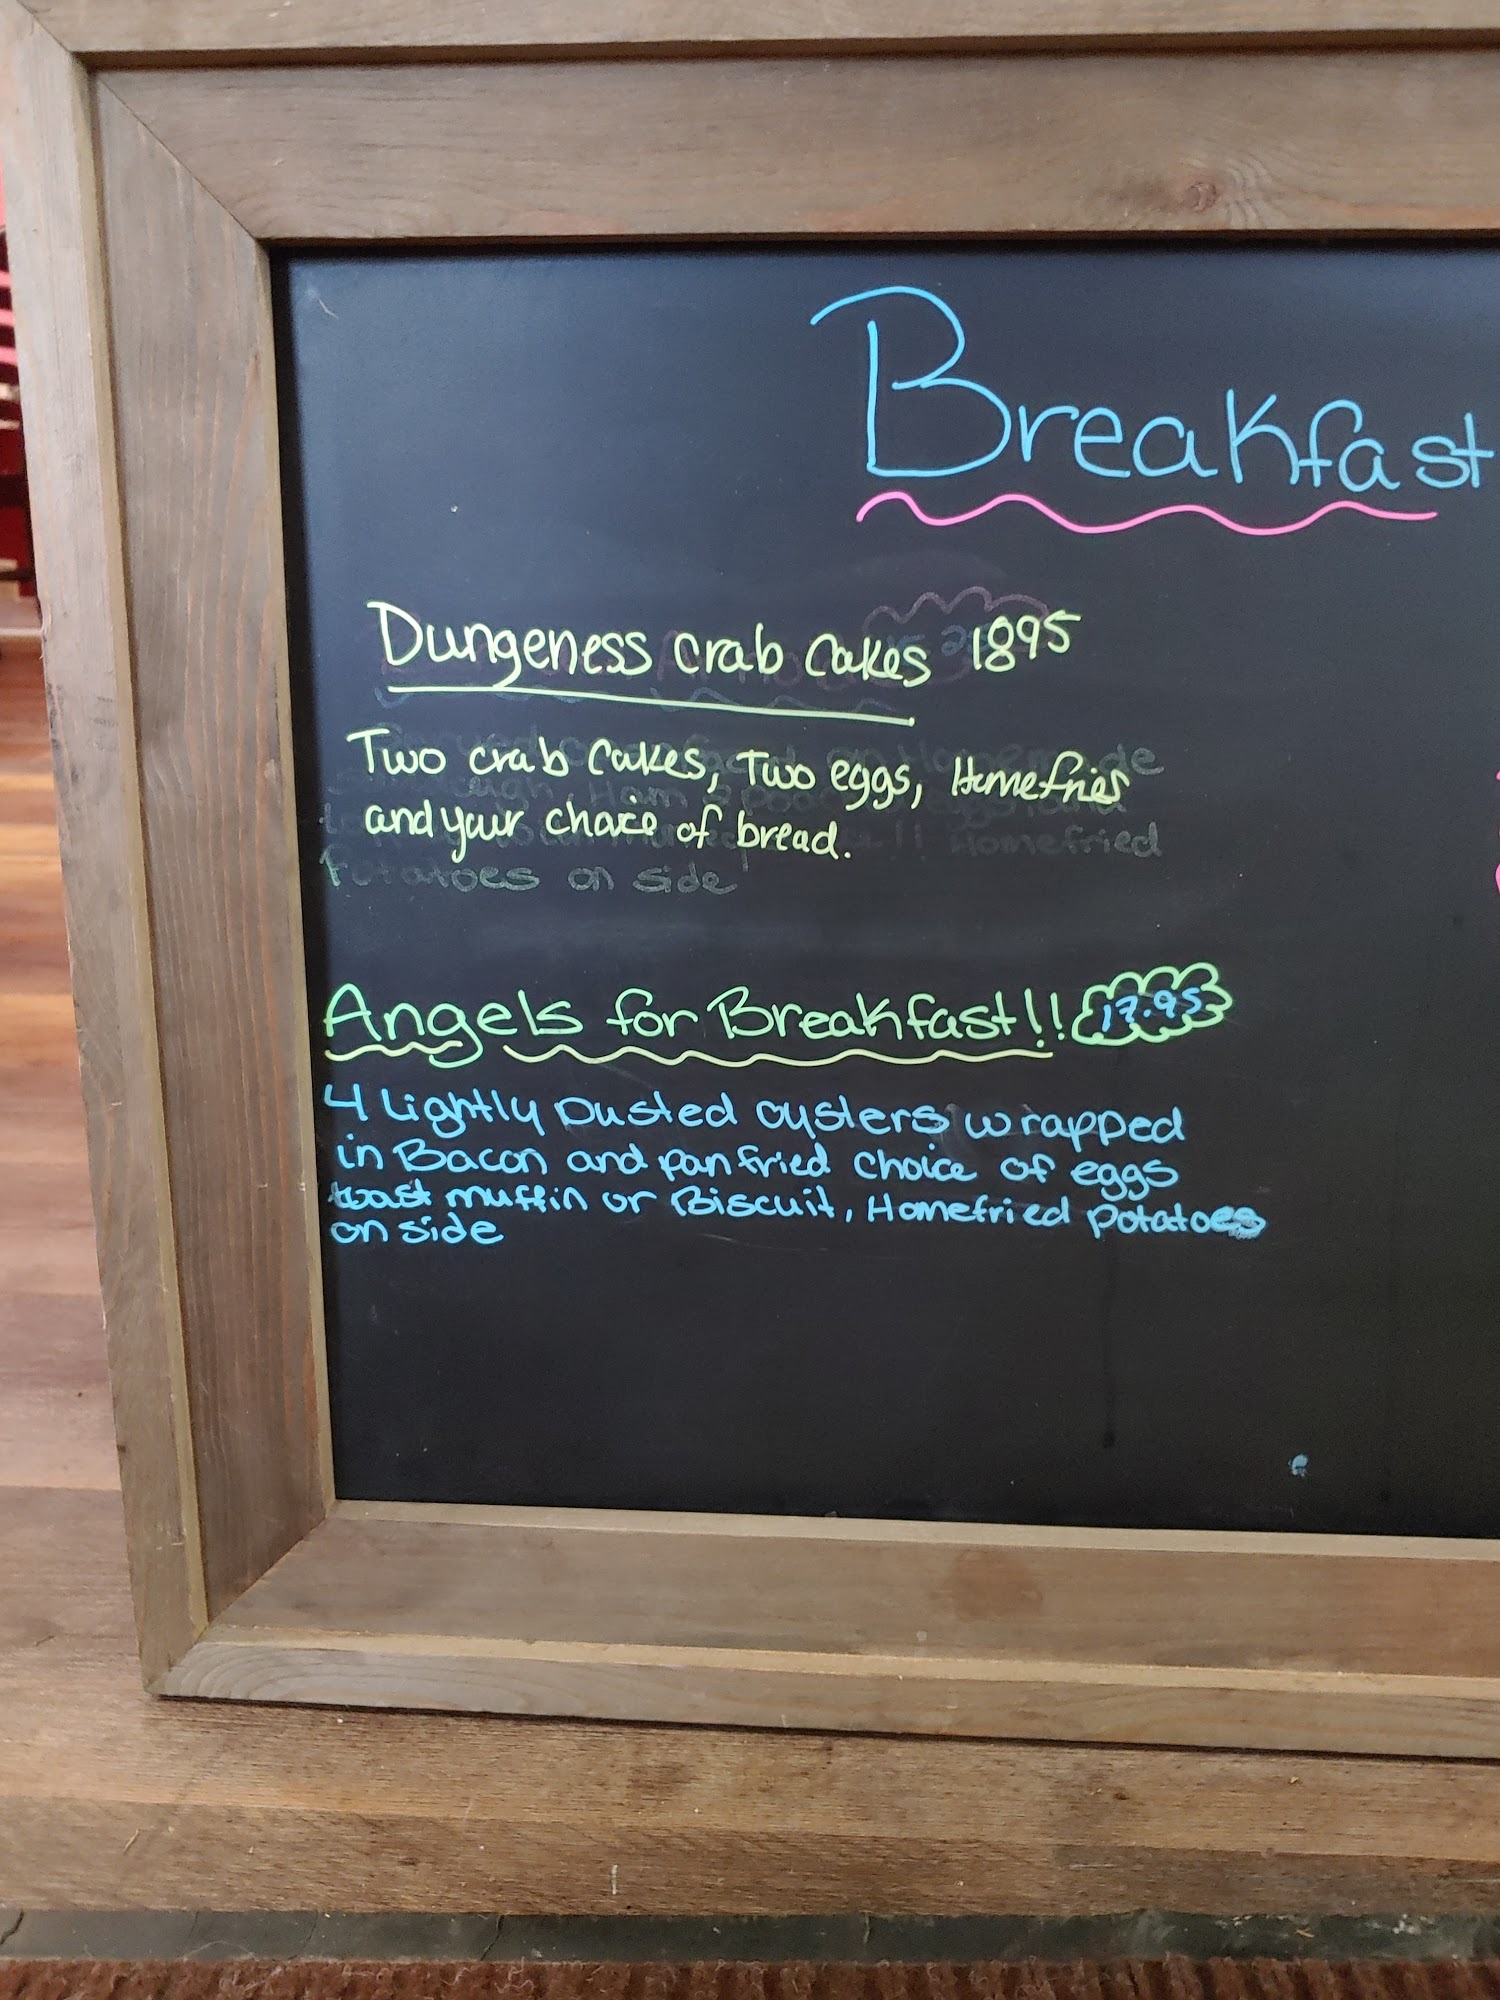 Breakfast
Dungeness crab Cakes 1895
Two crab Cakes, Two eggs, Homefries
and your choice of bread.
Homefried
Potatoes on side
Angels for Breakfast!! 17.95
4 Lightly Dusted oysters wrapped
in Bacon and pan fried choice of eggs
toast muffin or Biscuit, Homefried potatoes
on side